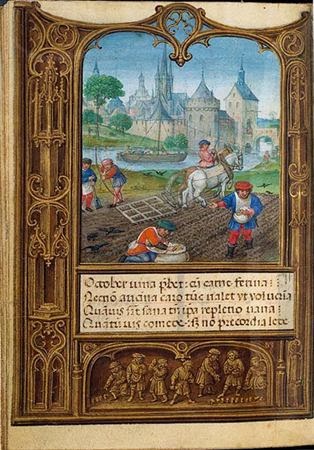 October vina p̄bet: cū carne ferina:
Necnō aucina caro tūc valet et volucrīa
Quāvis sīt sana repletio vana:
Quātū vis comede: sꝫ nō precordia lede